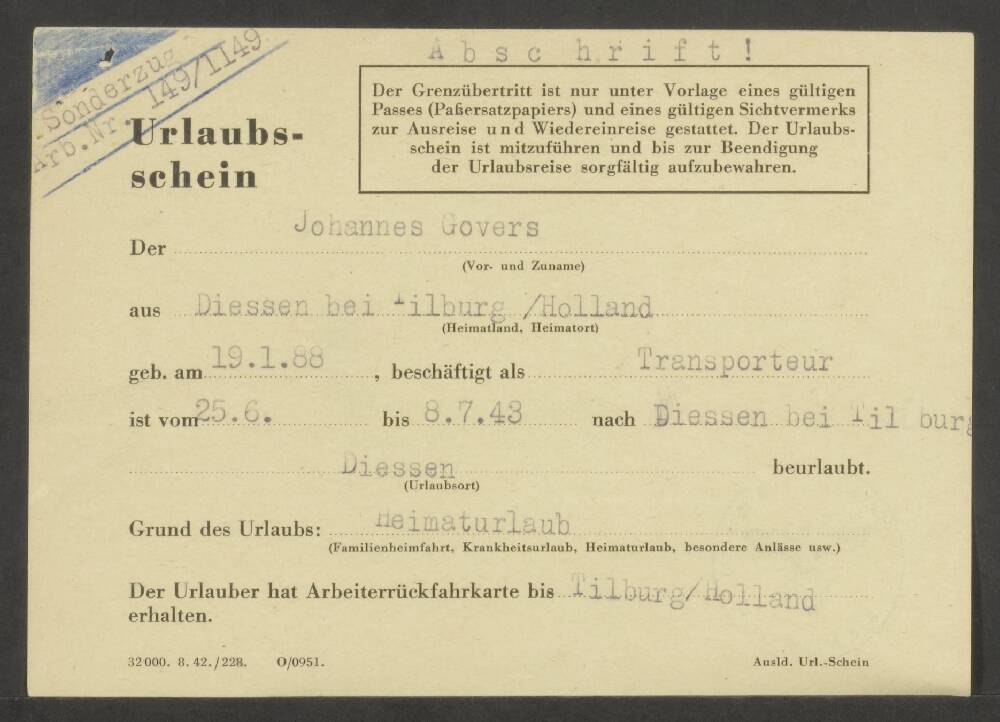 Abschrift!
Sonderzug
Arb.Nr. 149/1149
Urlaubs-
schein
Der Grenzübertritt ist nur unter Vorlage eines gültigen
Passes (Paßersatzpapiers) und eines gültigen Sichtvermerks
zur Ausreise und Wiedereinreise gestattet. Der Urlaubs-
schein ist mitzuführen und bis zur Beendigung
der Urlaubsreise sorgfältig aufzubewahren.
Der Johannes Govers
(Vor- und Zuname)
aus Diessen bei Tilburg /Holland
(Heimatland, Heimatort)
geb. am 19.1.88, beschäftigt als Transporteur
ist vom 25.6. bis 8.7.43 nach Diessen bei Til burg
Diessen beurlaubt.
(Urlaubsort)
Grund des Urlaubs: Heimaturlaub
(Familienheimfahrt, Krankheitsurlaub, Heimaturlaub, besondere Anlässe usw.)
Der Urlauber hat Arbeiterrückfahrkarte bis Tilburg/Holland
erhalten.
32000. 8.42./228. O/0951. Ausld. Url.-Schein